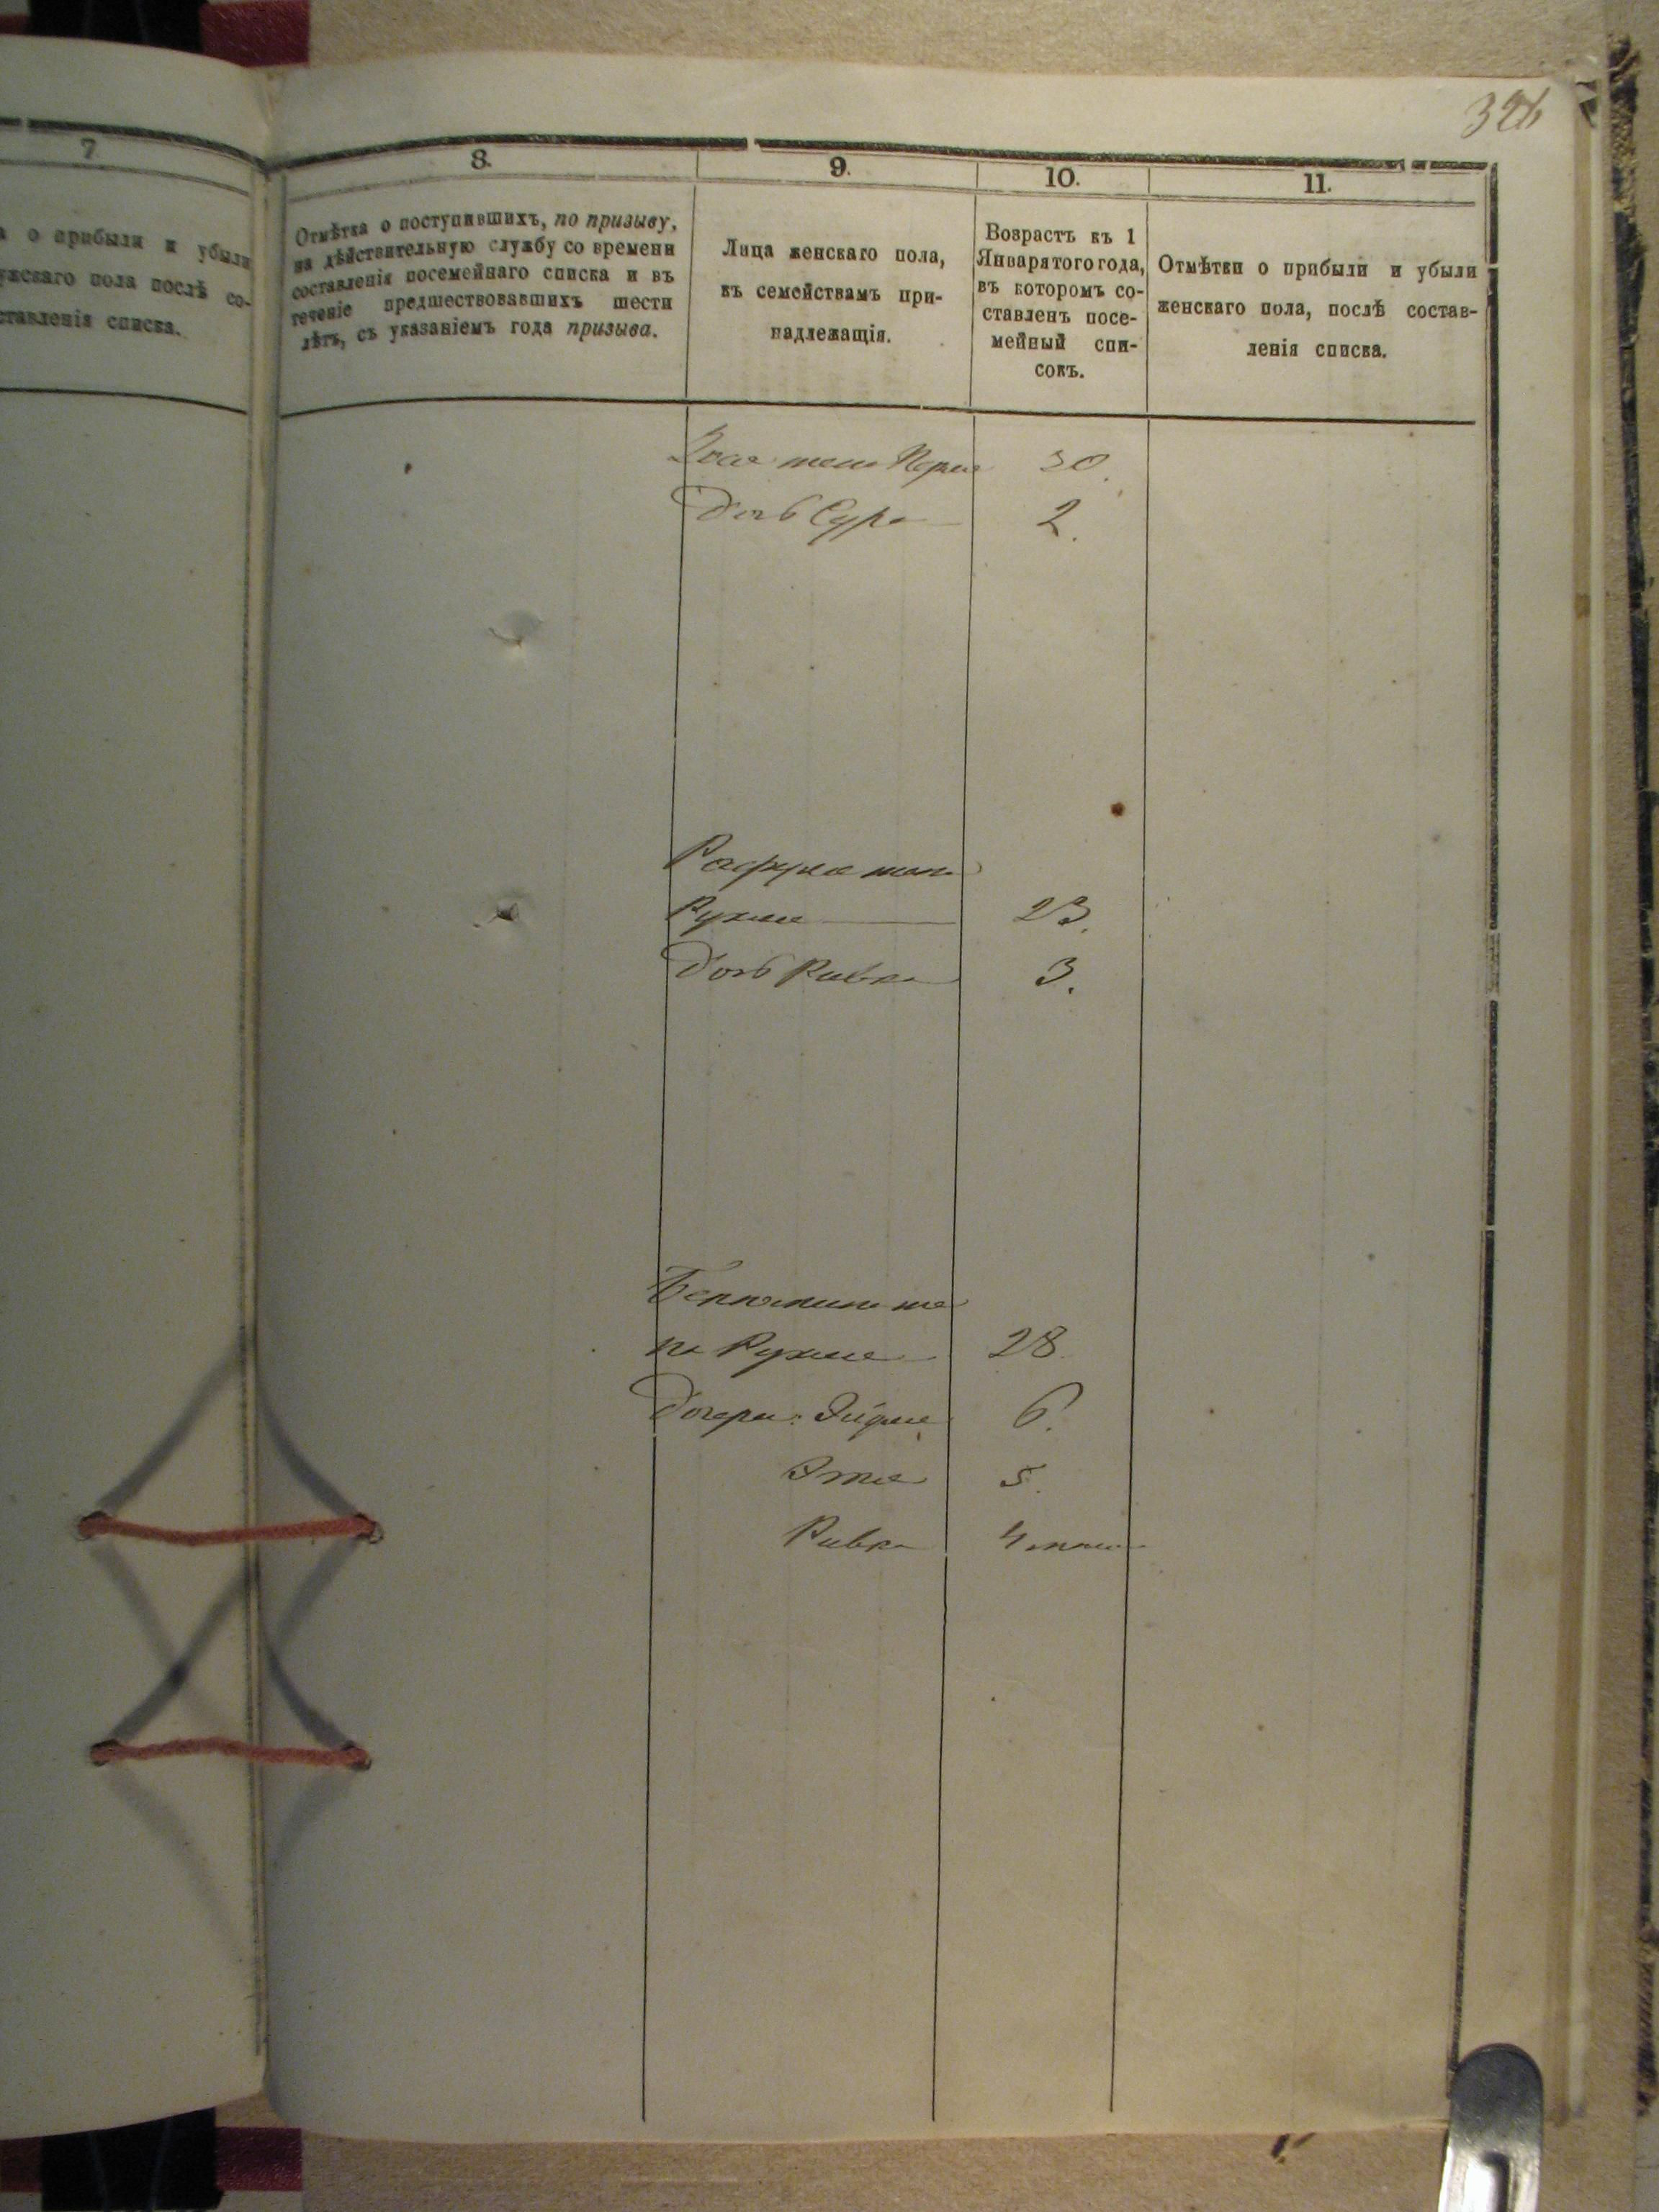 7.
а о прибыли и убыли
ужескаго пола послѣ со-
ставленія списка.
8.
Отмѣтка о поступившихъ, по призыву,
на дѣйствительную службу со времени
составленія посемейнаго списка и въ
теченіе предшествовавшихъ шести
лѣтъ, съ указаніемъ года призыва.
9.
Лица женскаго пола,
къ семействамъ при-
надлежащія.
10.
Возрастъ къ 1
Января того года,
въ которомъ со-
ставленъ посе-
мейный спи-
сокъ.
11.
Отмѣтки о прибыли и убыли
женскаго пола, послѣ состав-
ленія списка.
жена 30.
Дочь Сура 2.
жена
Рухля 23.
Дочь Ривка 3.
же
на Рухля 28.
Дочери: 6.
Этля 5.
Ривка 4